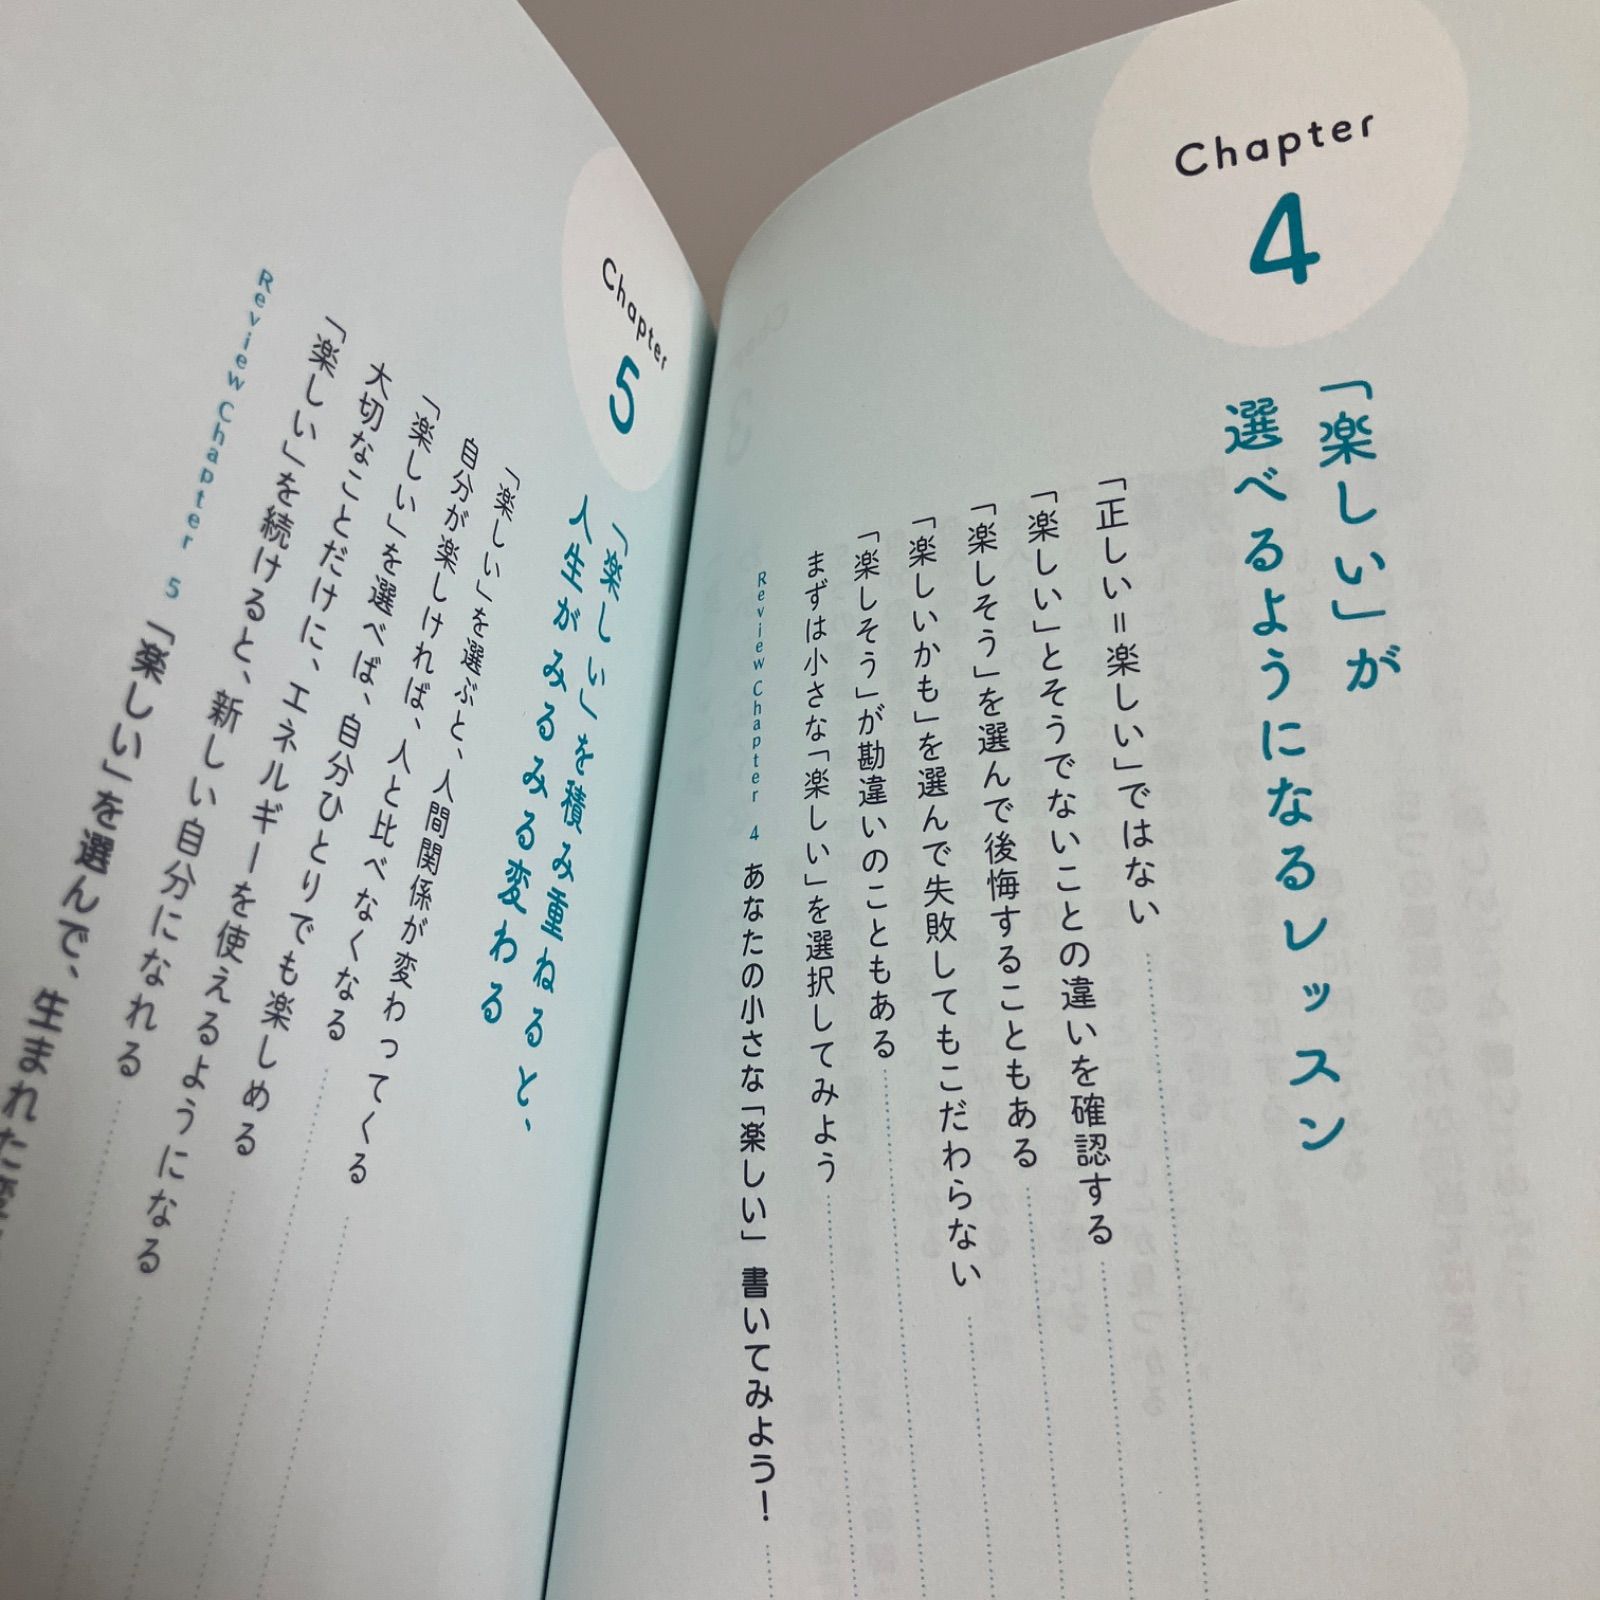 Chapter
4
「楽しい」が
選べるようになるレッスン
「正しい＝楽しい」ではない
「楽しい」とそうでないことの違いを確認する
「楽しそう」を選んで後悔することもある
「楽しいかも」を選んで失敗してもこだわらない
「楽しそう」が勘違いのこともある
まずは小さな「楽しい」を選択してみよう
Review Chapter 4 あなたの小さな「楽しい」 書いてみよう！
Chapter
5
「楽しい」を積み重ねると、
人生がみるみる変わる
「楽しい」を選ぶと、人間関係が変わってくる
自分が楽しければ、人と比べなくなる
「楽しい」を選べば、自分ひとりでも楽しめる
大切なことだけに、エネルギーを使えるようになる
「楽しい」を続けると、新しい自分になれる
Review Chapter 5 「楽しい」を選んで、生まれた変